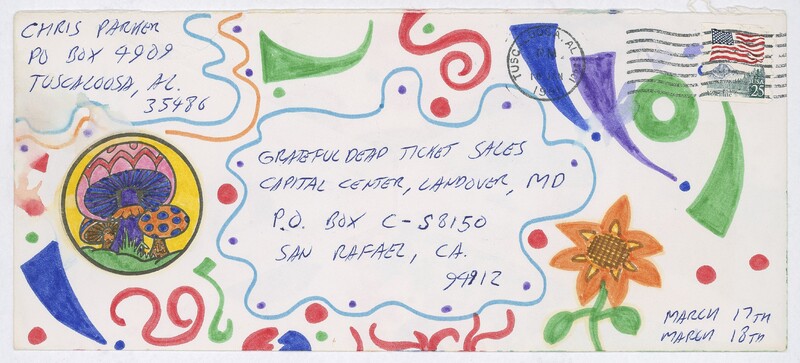 CHRIS PARKER
PO BOX 4909
TUSCALOOSA, AL.
35486
TUSCALOOSA, AL
PM
USA
25
GRATEFUL DEAD TICKET SALES
CAPITAL CENTER, LANDOVER, MD
P.O. BOX C-S8150
SAN RAFAEL, CA.
94912
MARCH 17TH
MARCH 18TH